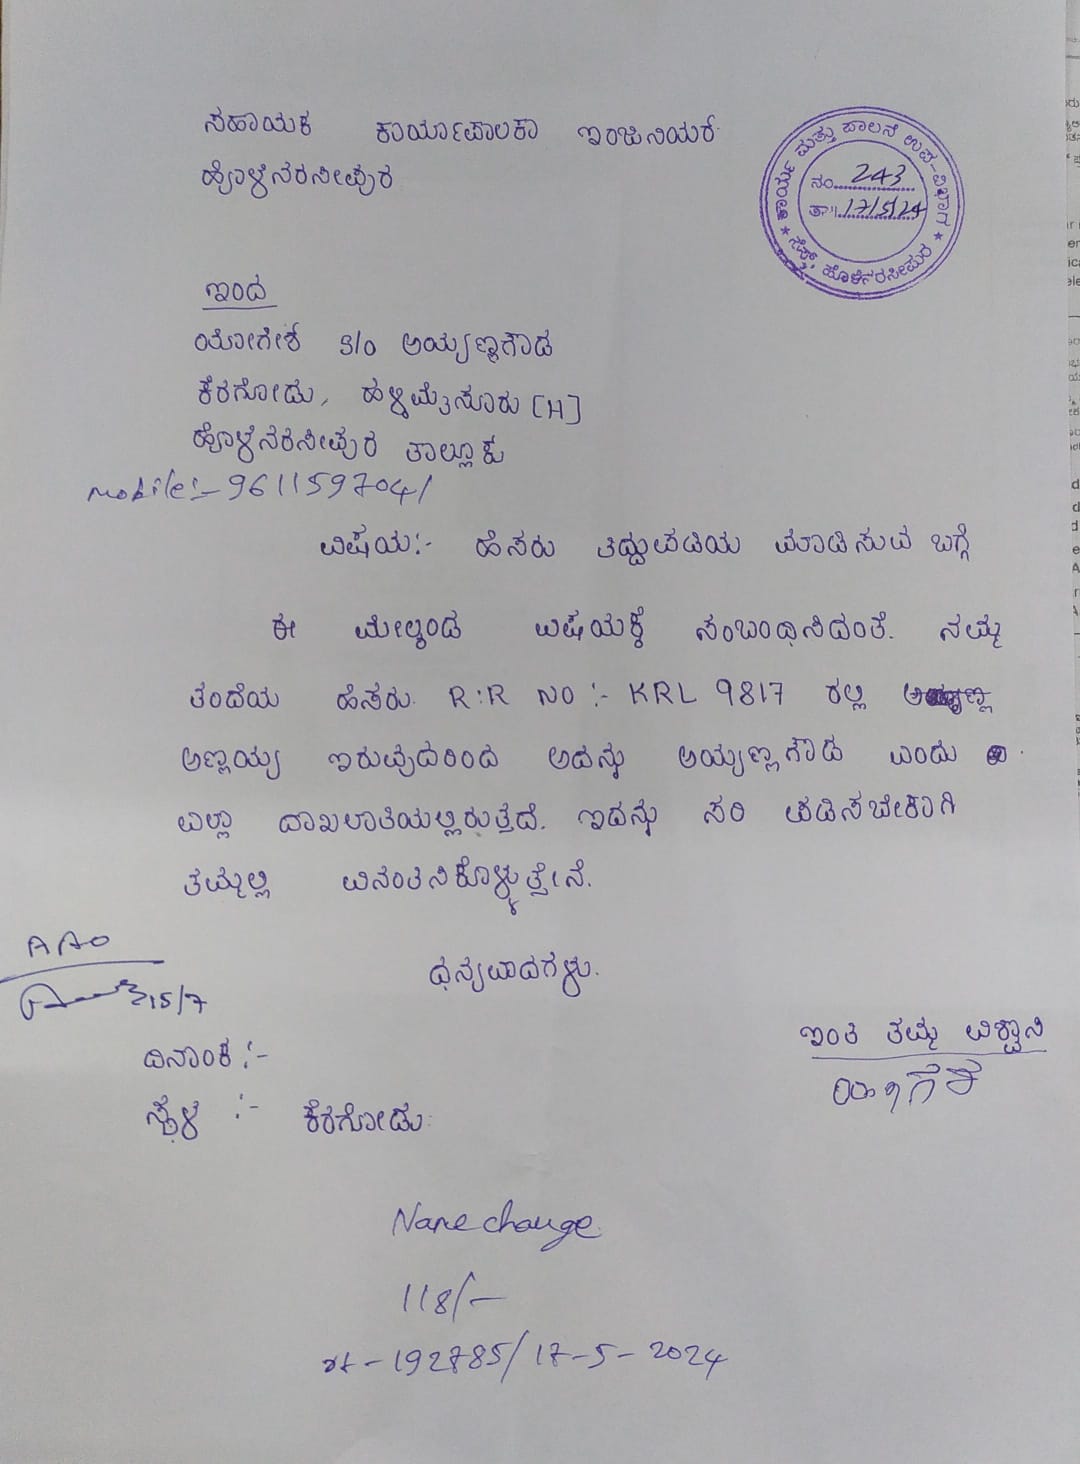 ಸಹಾಯಕ ಕಾರ್ಯಾಪಾಲಕಾ ಇಂಜಿನಿಯರ್
ಹೊಳೆನರಸೀಪುರ
ಕಾರ್ಯ ಮತ್ತು ಪಾಲನೆ ಉಪ-ವಿಭಾಗ
ನಂ. 243
ತಾ॥ 17/5/24
ಸೆಸ್ಕ್, ಹೊಳೆನರಸೀಪುರ
ಇಂದ
ಯೋಗೇಶ್ S/o ಅಯ್ಯಣ್ಣಗೌಡ
ಕೆರಗೋಡು, ಹಳ್ಳಿಮೈಸೂರು [H]
ಹೊಳೆನರಸೀಪುರ ತಾಲ್ಲೂಕು
mobile:- 9611597041
ವಿಷಯ:- ಹೆಸರು ತಿದ್ದುಪಡಿಯ ಮಾಡಿಸುವ ಬಗ್ಗೆ
ಈ ಮೇಲ್ಕಂಡ ವಿಷಯಕ್ಕೆ ಸಂಬಂಧಿಸಿದಂತೆ. ನಮ್ಮ
ತಂದೆಯ ಹೆಸರು R:R NO :- KRL 9817 ರಲ್ಲಿ
ಅಣ್ಣಯ್ಯ ಇರುವುದರಿಂದ ಅದನ್ನು ಅಯ್ಯಣ್ಣಗೌಡ ಎಂದು
ಎಲ್ಲಾ ದಾಖಲಾತಿಯಲ್ಲಿರುತ್ತದೆ. ಇದನ್ನು ಸರಿ ಪಡಿಸಬೇಕಾಗಿ
ತಮ್ಮಲ್ಲಿ ವಿನಂತಿಸಿಕೊಳ್ಳುತ್ತೇನೆ.
ಧನ್ಯವಾದಗಳು.
AAO
15/7
ಇಂತಿ ತಮ್ಮ ವಿಶ್ವಾಸಿ
ಯೋಗೇಶ
ದಿನಾಂಕ :-
ಸ್ಥಳ :- ಕೆರಗೋಡು
Name change
118/-
rt - 192785/17-5-2024